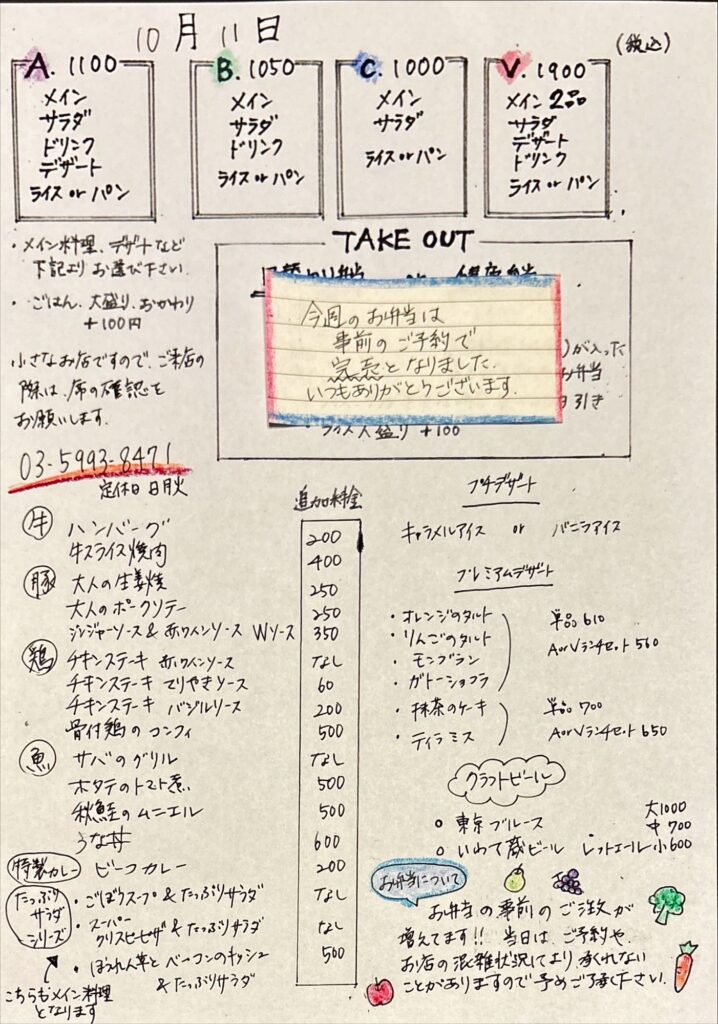 10月11日
(税込)
A. 1100
メイン
サラダ
ドリンク
デザート
ライス or パン
B. 1050
メイン
サラダ
ドリンク
ライス or パン
C. 1000
メイン
サラダ
ライス or パン
V. 1900
メイン 2品
サラダ
デザート
ドリンク
ライス or パン
・メイン料理、デザートなど
下記よりお選び下さい
・ごはん、大盛り、おかわり
+100円
小さなお店ですので、ご来店の
際は、席の確認を
お願いします.
03-5993-8471
定休日 日月火
TAKE OUT
今週のお弁当は
事前のご予約で
完売となりました.
いつもありがとうございます.
)が入った
お弁当
引き
ライス大盛り +100
追加料金
牛 ハンバーグ 200
牛スライス焼肉 400
豚 大人の生姜焼 250
大人のポークソテー 250
ジンジャーソース & 赤ワインソース Wソース 350
鶏 チキンステーキ 赤ワインソース なし
チキンステーキ てりやきソース 60
チキンステーキ バジルソース 200
骨付鶏のコンフィ 500
魚 サバのグリル なし
ホタテのトマト煮 500
秋鮭のムニエル 500
うな丼 600
特製カレー ビーフカレー 200
たっぷりサラダシリーズ
・ごぼうスープ & たっぷりサラダ なし
・スーパー
クリスピーピザ & たっぷりサラダ なし
・ほうれん草とベーコンのキッシュ 500
& たっぷりサラダ
こちらもメイン料理
となります
プチデザート
キャラメルアイス or バニラアイス
プレミアムデザート
・オレンジのタルト
・りんごのタルト
・モンブラン
・ガトーショコラ
単品 610
AorVランチセット 560
・抹茶のケーキ
・ティラミス
単品 700
AorVランチセット 650
クラフトビール
○ 東京ブルース 大1000
中 700
○ いわて蔵ビール レッドエール 小600
お弁当について
お弁当の事前のご注文が
増えてます!! 当日は、ご予約や、
お店の混雑状況により承れない
ことがありますので予めご了承下さい.